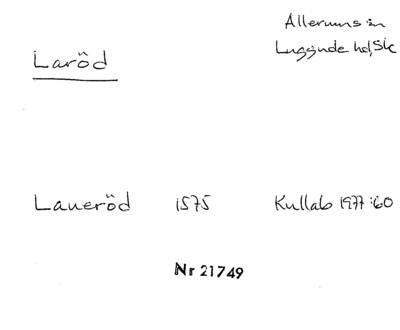 Allerums sn
Luggude hd, Sk
Laröd
Laueröd 1575 Kullab 1977:60
Nr 21749